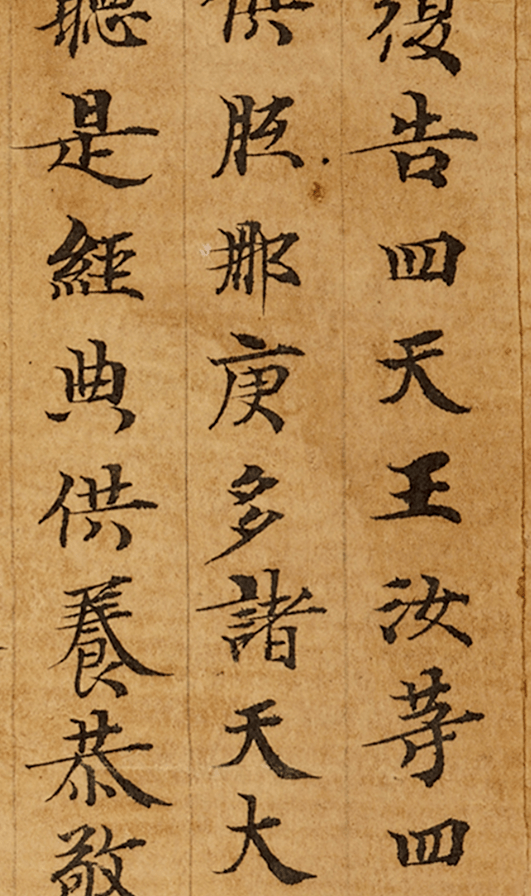 復告四天王汝等四
供胝那庾多諸天大
聽是經典供養恭敬